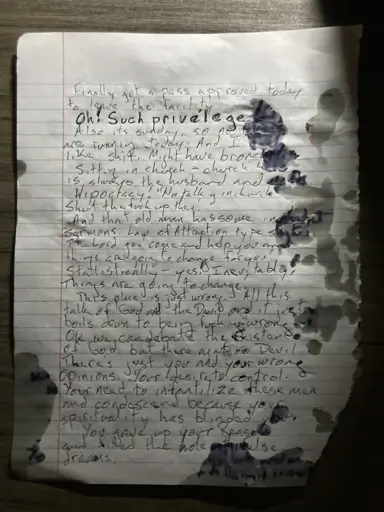 Finally got a pass approved today
to leave the facility
Oh! Such privelege
Also its sunday, so no
are running today. And I
like shit. Might have bronch
Sitting in church - church
is always the husband and
Hipocracy! "No talking in church
Shut the fuck up they!
And that old man has some
Sermons. Law of Attraction type
The Lord gon' come and help you and
things are going to change for you.
Statistically - yes. Inevitably,
Things are going to change.
This place is just wrong. All this
talk of God and the Devil and it just
boils down to being fucking wrong.
Ok we can debate the existence
of God but there aint no Devil
There's just you and your wrong
opinions. Your desire to control.
Your need to infantilize these men
and condescend because your
spirituality has blinded you.
You gave up your
and the whole
dreams.